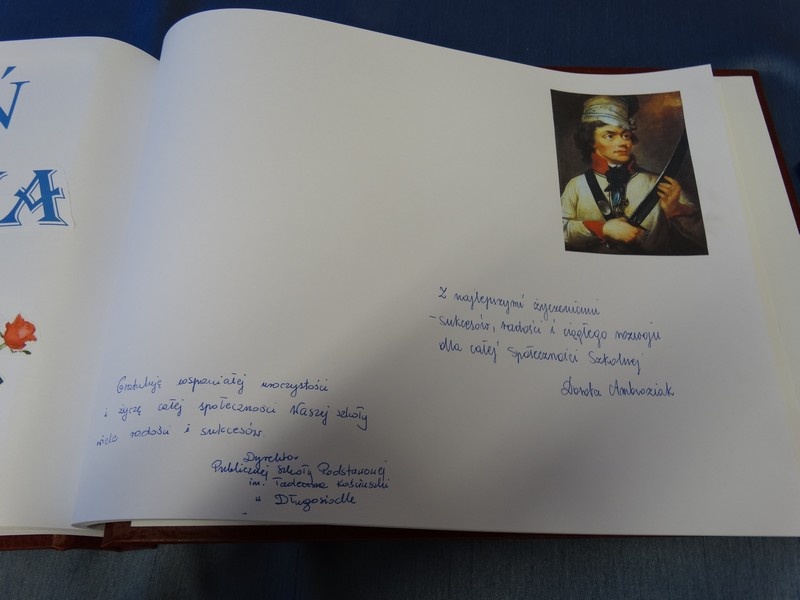 Ń
KA
Z najlepszymi życzeniami
- sukcesów, radości i ciągłego rozwoju
dla całej Społeczności Szkolnej
Dorota Ambroziak
Gratuluję wspaniałej uroczystości
i życzę całej społeczności Waszej szkoły
wiele radości i sukcesów.
Dyrektor
Publicznej Szkoły Podstawowej
im. Tadeusza Kościuszki
w Długosiodle